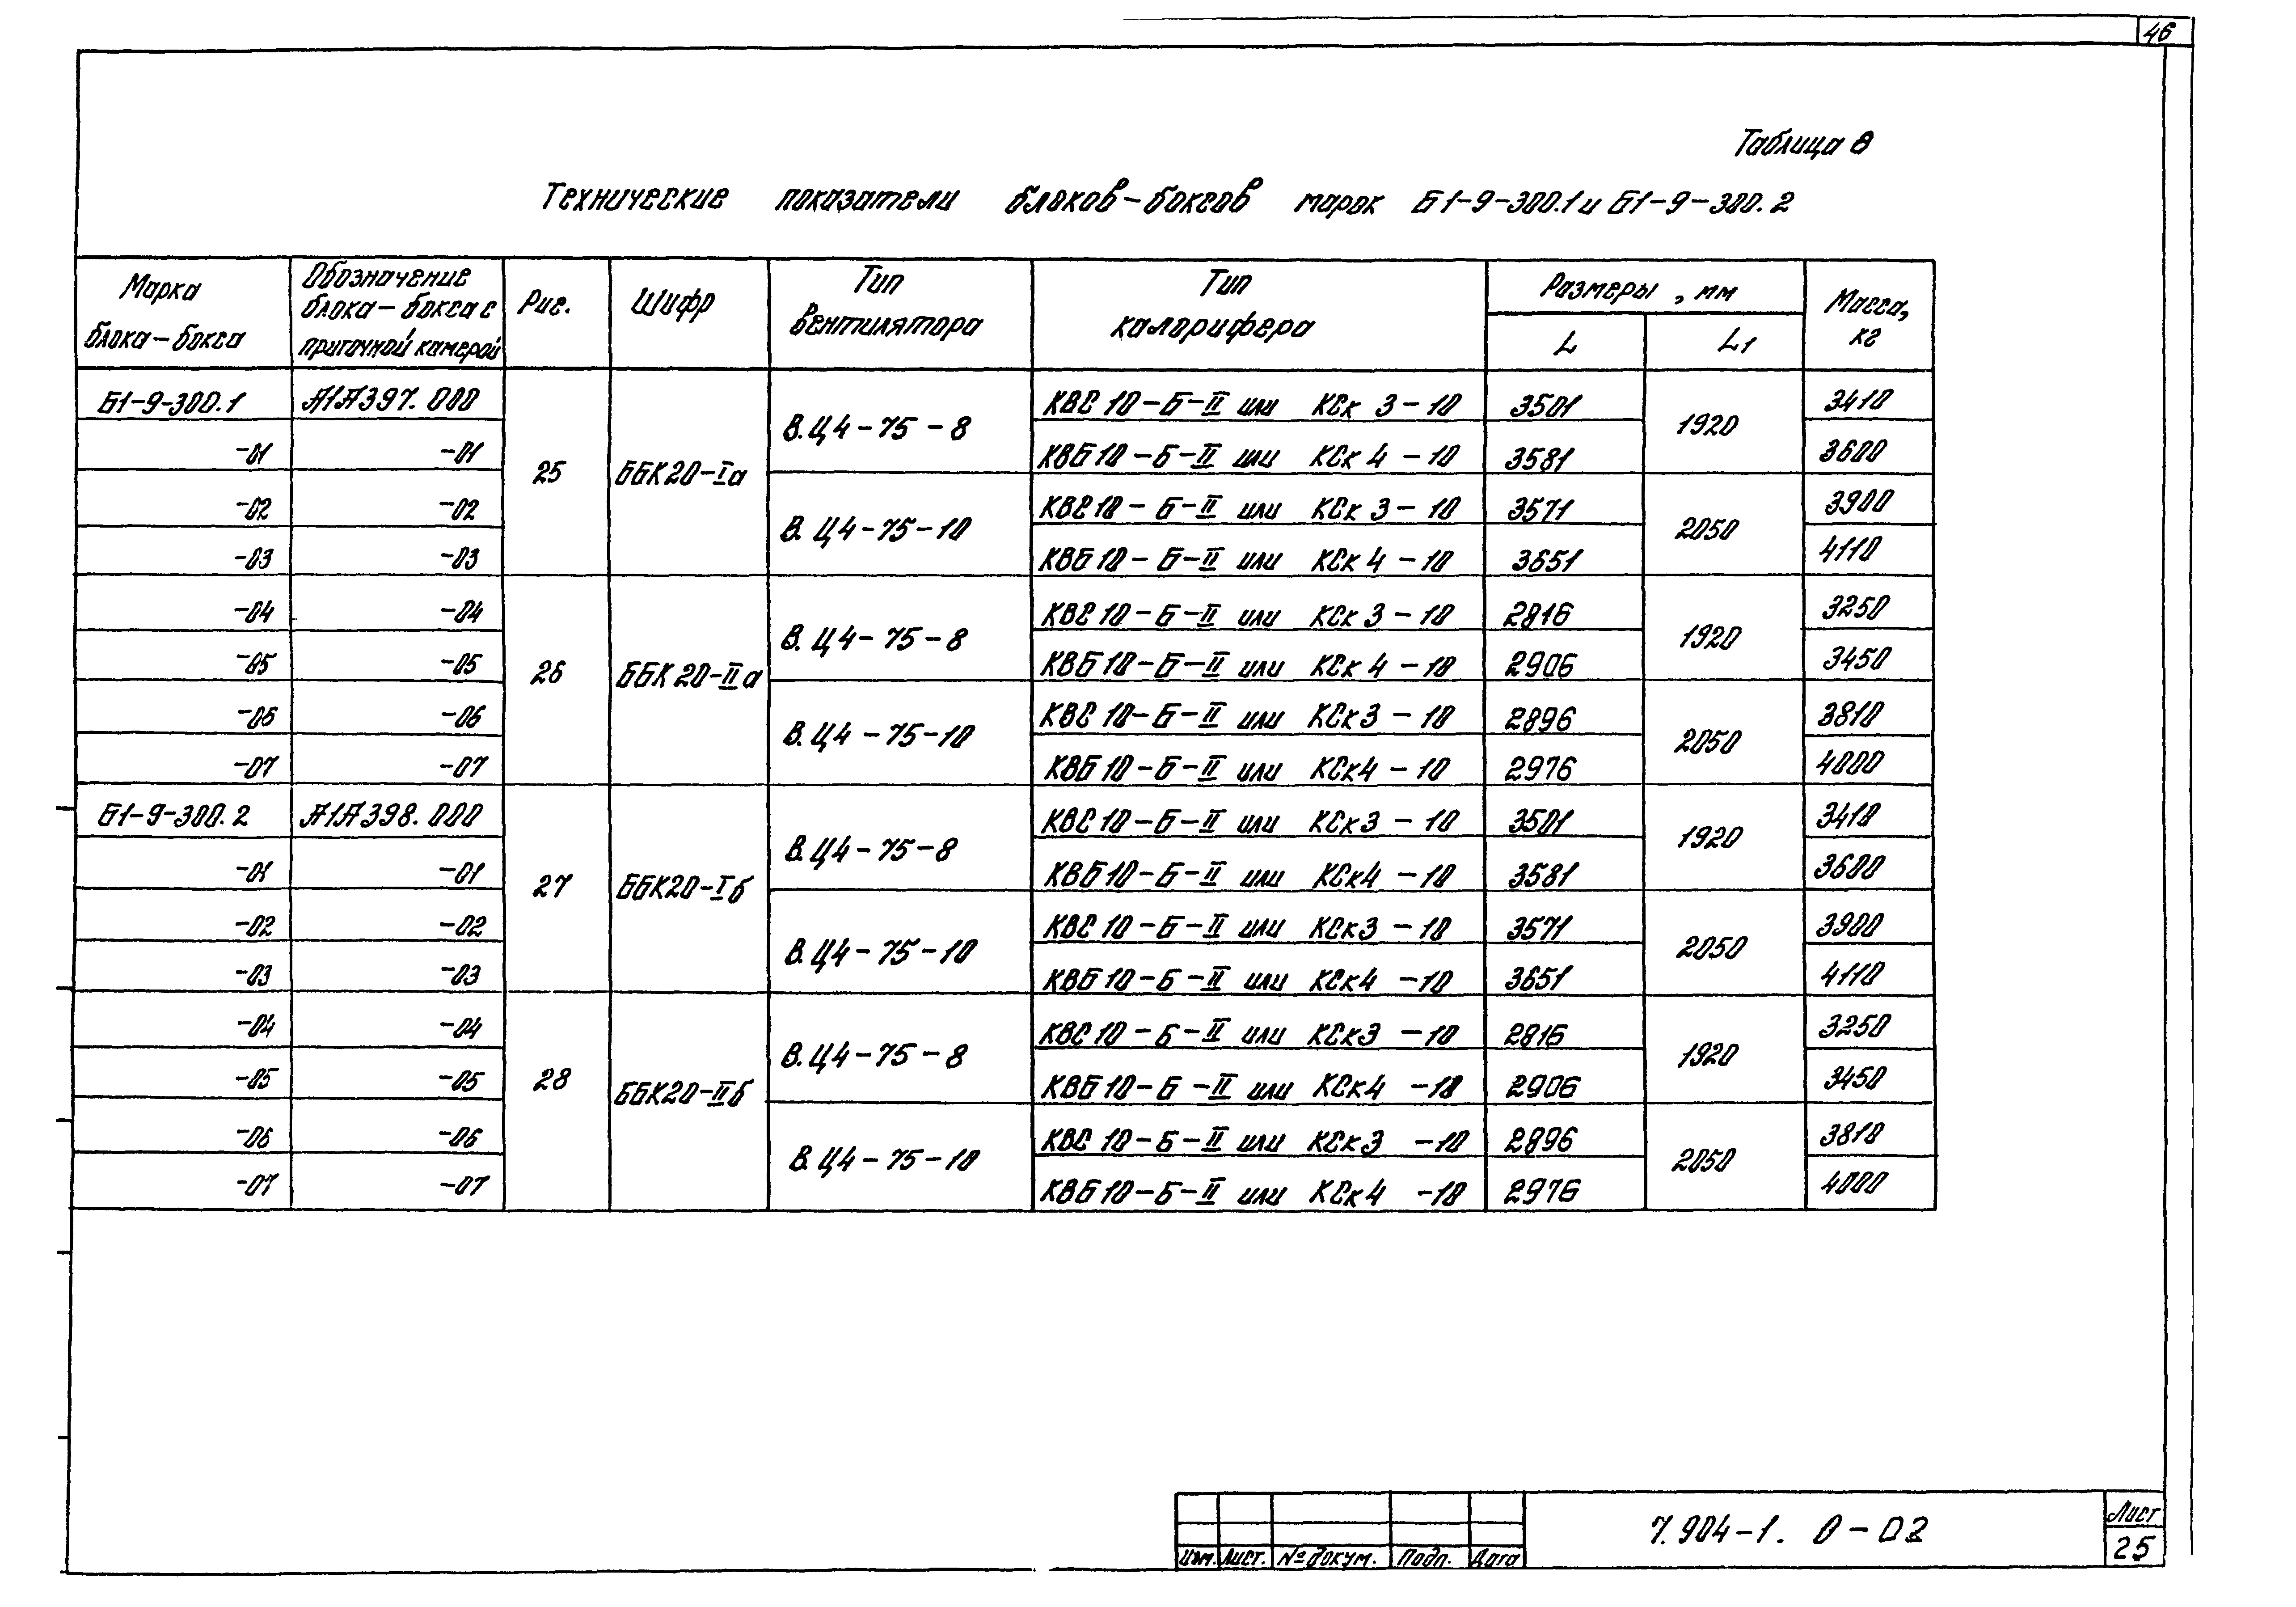 46
Таблица 8
Технические показатели блоков-боксов марок Б1-9-300.1 и Б1-9-300.2
Марка блока-бокса | Обозначение блока-бокса с приточной камерой | Рис. | Шифр | Тип вентилятора | Тип калорифера | Размеры, мм | Масса, кг
L | L1
Б1-9-300.1 | А1А397.000 | 25 | ББК20-Iа | В.Ц4-75-8 | КВС10-Б-II или КСк 3-10 | 3501 | 1920 | 3410
-01 | -01 | КВБ10-Б-II или КСк 4-10 | 3581 | 3600
-02 | -02 | В.Ц4-75-10 | КВС10-Б-II или КСк 3-10 | 3571 | 2050 | 3900
-03 | -03 | КВБ10-Б-II или КСк 4-10 | 3651 | 4110
-04 | -04 | 26 | ББК20-IIа | В.Ц4-75-8 | КВС10-Б-II или КСк 3-10 | 2816 | 1920 | 3250
-05 | -05 | КВБ10-Б-II или КСк 4-10 | 2906 | 3450
-06 | -06 | В.Ц4-75-10 | КВС10-Б-II или КСк 3-10 | 2896 | 2050 | 3810
-07 | -07 | КВБ10-Б-II или КСк 4-10 | 2976 | 4000
Б1-9-300.2 | А1А398.000 | 27 | ББК20-Iб | В.Ц4-75-8 | КВС10-Б-II или КСк 3-10 | 3501 | 1920 | 3410
-01 | -01 | КВБ10-Б-II или КСк 4-10 | 3581 | 3600
-02 | -02 | В.Ц4-75-10 | КВС10-Б-II или КСк 3-10 | 3571 | 2050 | 3900
-03 | -03 | КВБ10-Б-II или КСк 4-10 | 3651 | 4110
-04 | -04 | 28 | ББК20-IIб | В.Ц4-75-8 | КВС10-Б-II или КСк 3-10 | 2816 | 1920 | 3250
-05 | -05 | КВБ10-Б-II или КСк 4-10 | 2906 | 3450
-06 | -06 | В.Ц4-75-10 | КВС10-Б-II или КСк 3-10 | 2896 | 2050 | 3810
-07 | -07 | КВБ10-Б-II или КСк 4-10 | 2976 | 4000
Изм. Лист. № докум. Подп. Дата
7.904-1. 0-02
Лист
25